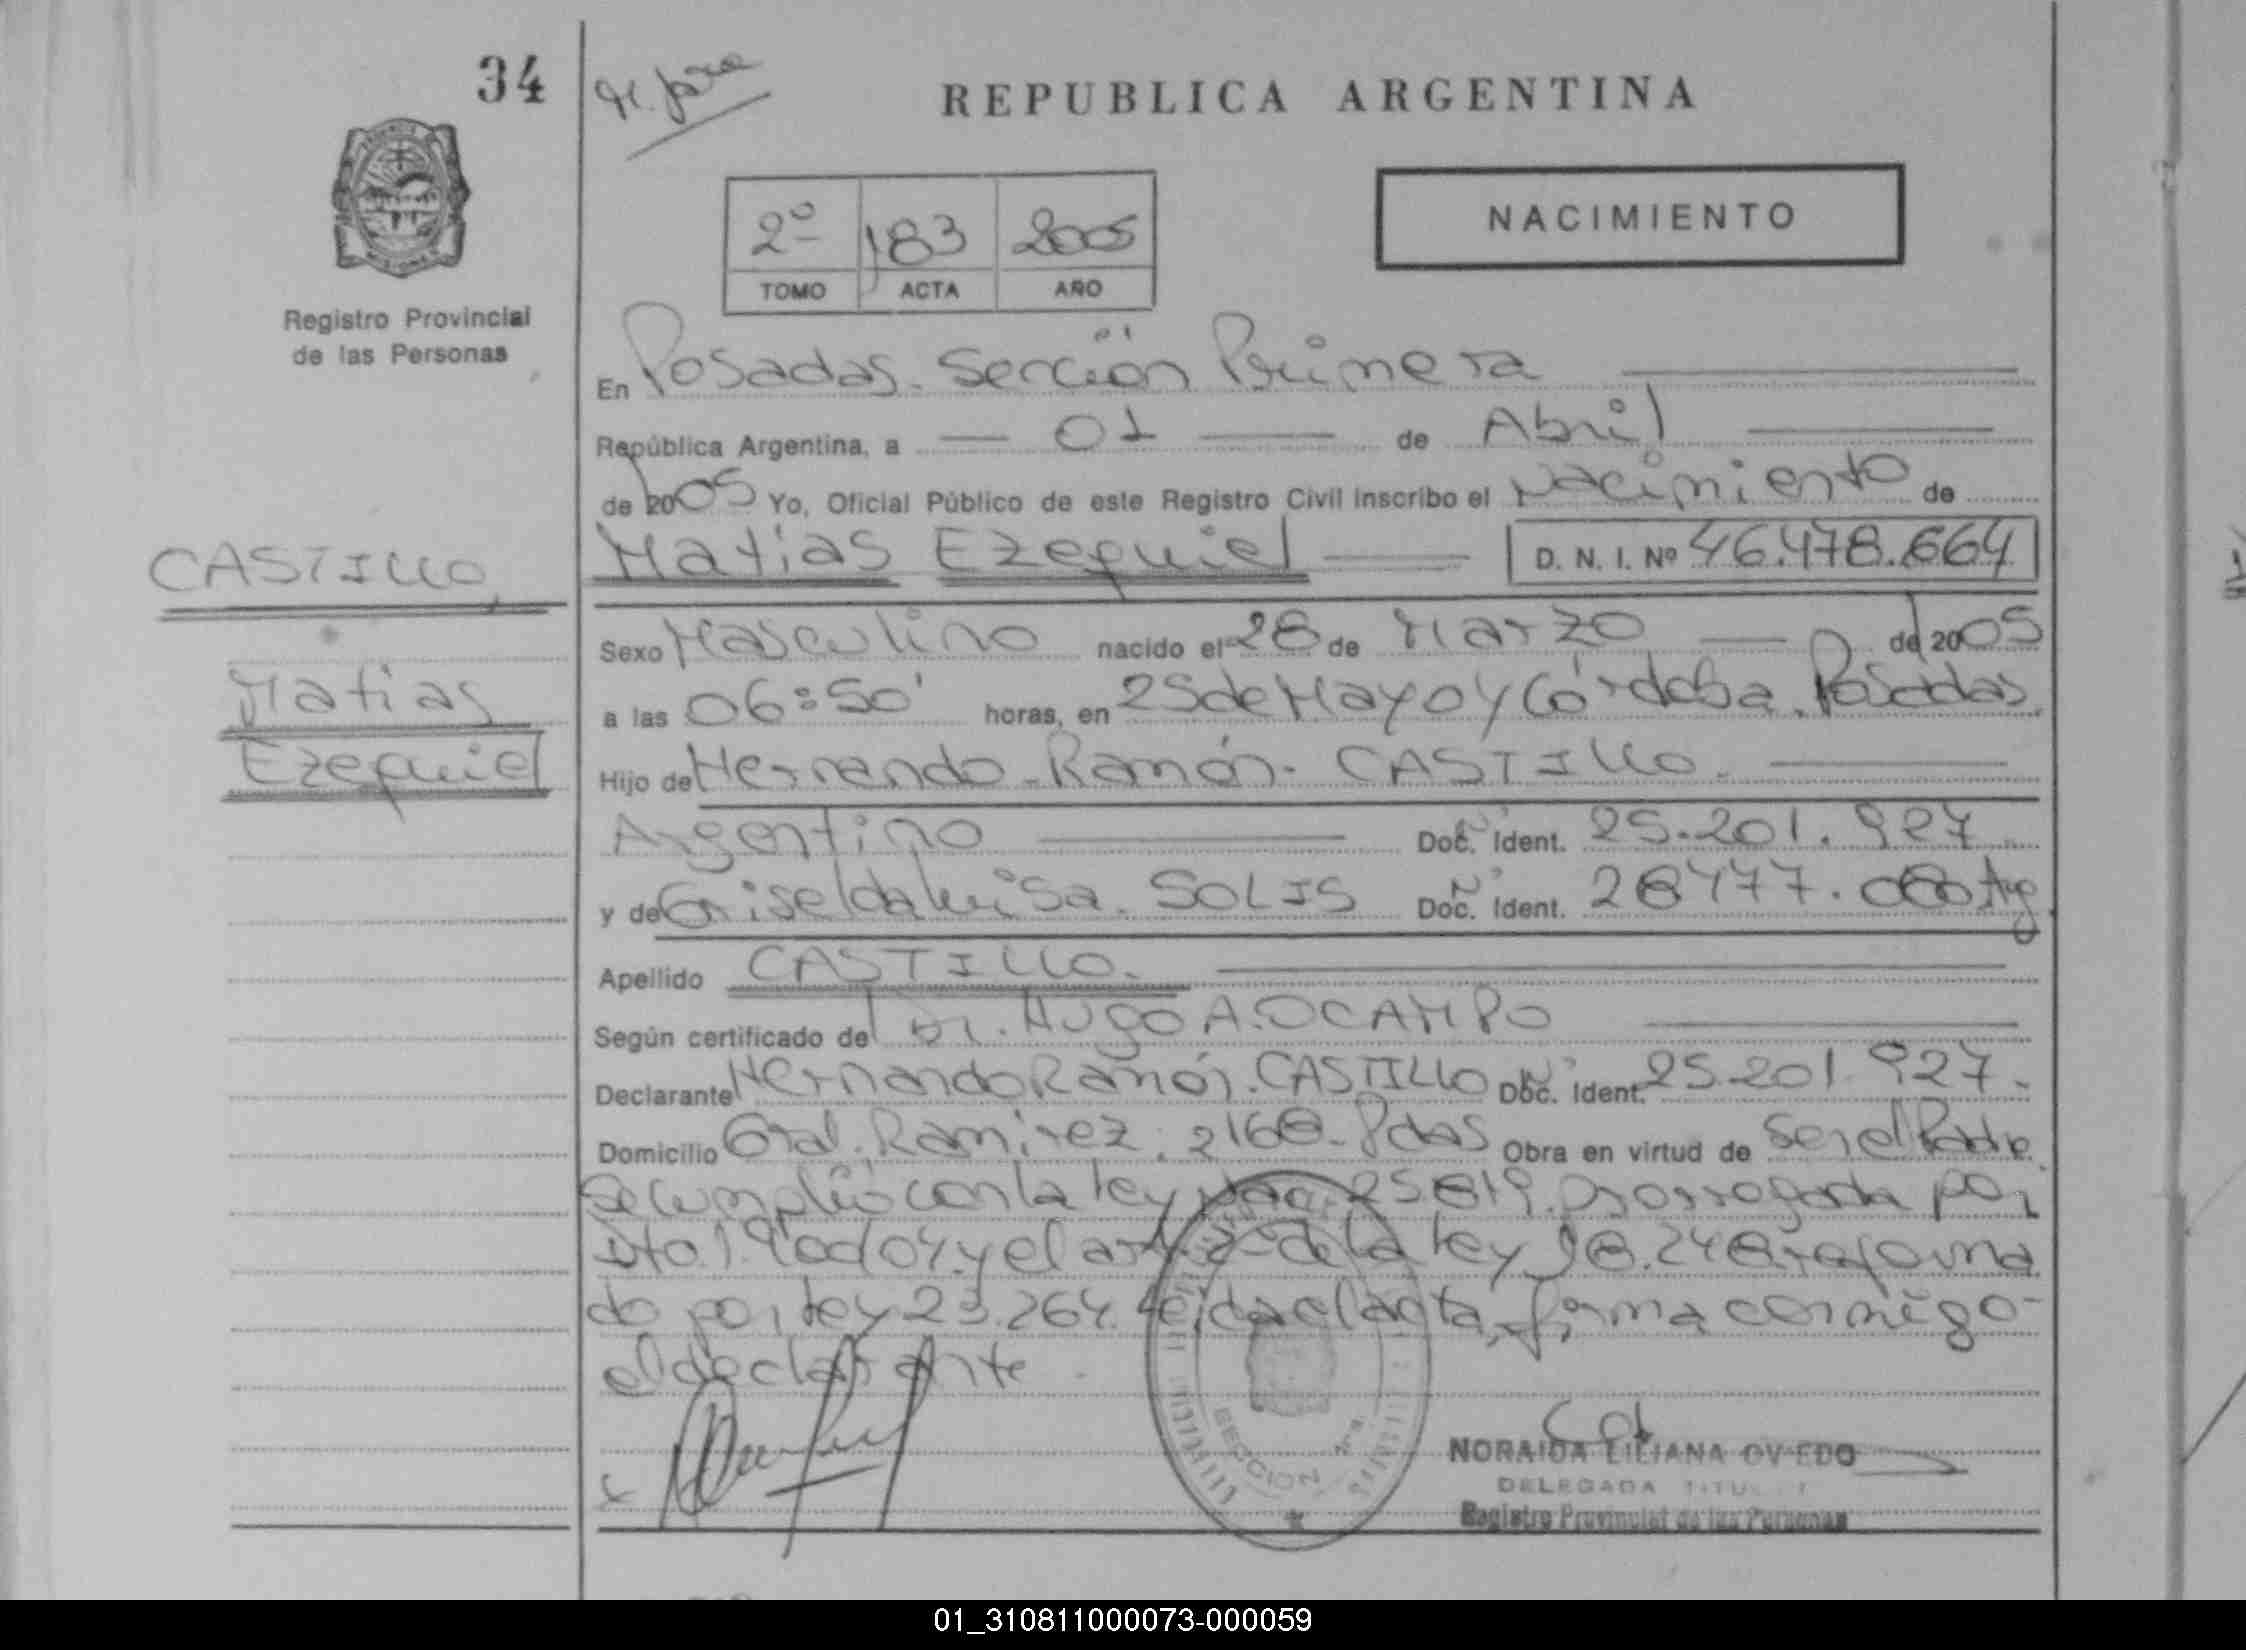 34
REPUBLICA ARGENTINA
NACIMIENTO
2º 183 2005
TOMO ACTA AÑO
Registro Provincial
de las Personas
En Posadas. Sección Primera
República Argentina, a 01 de Abril
de 2005 Yo, Oficial Público de este Registro Civil inscribo el Nacimiento de
CASTILLO,
Matias Ezequiel D. N. I. Nº 46.478.664
Matias
Ezequiel
Sexo Masculino nacido el 28 de Marzo de 2005
a las 06:50' horas, en 25 de Mayo y Córdoba. Posadas.
Hijo de Hernando Ramón. CASTILLO.
Argentino Doc. Ident. 25.201.927
y de Griselda Luisa. SOLIS Doc. Ident. 28477.080 Arg.
Apellido CASTILLO.
Según certificado de Dr. Hugo A. OCAMPO
Declarante Hernando Ramón. CASTILLO Doc. Ident. 25.201.927.
Domicilio Gral. Ramirez. 2168. Pdas Obra en virtud de Ser el Padre.
Se cumplió con la ley 25819. prorrogada por
Dto. 190 y el art. 2º de la ley 18.248. reforma
do por ley 23.264. Leida el acta, firma conmigo-
el declarante.
SECCION 1ra.
NORAIDA LILIANA OVIEDO
DELEGADA TITULAR
Registro Provincial de las Personas
01_310811000073-000059